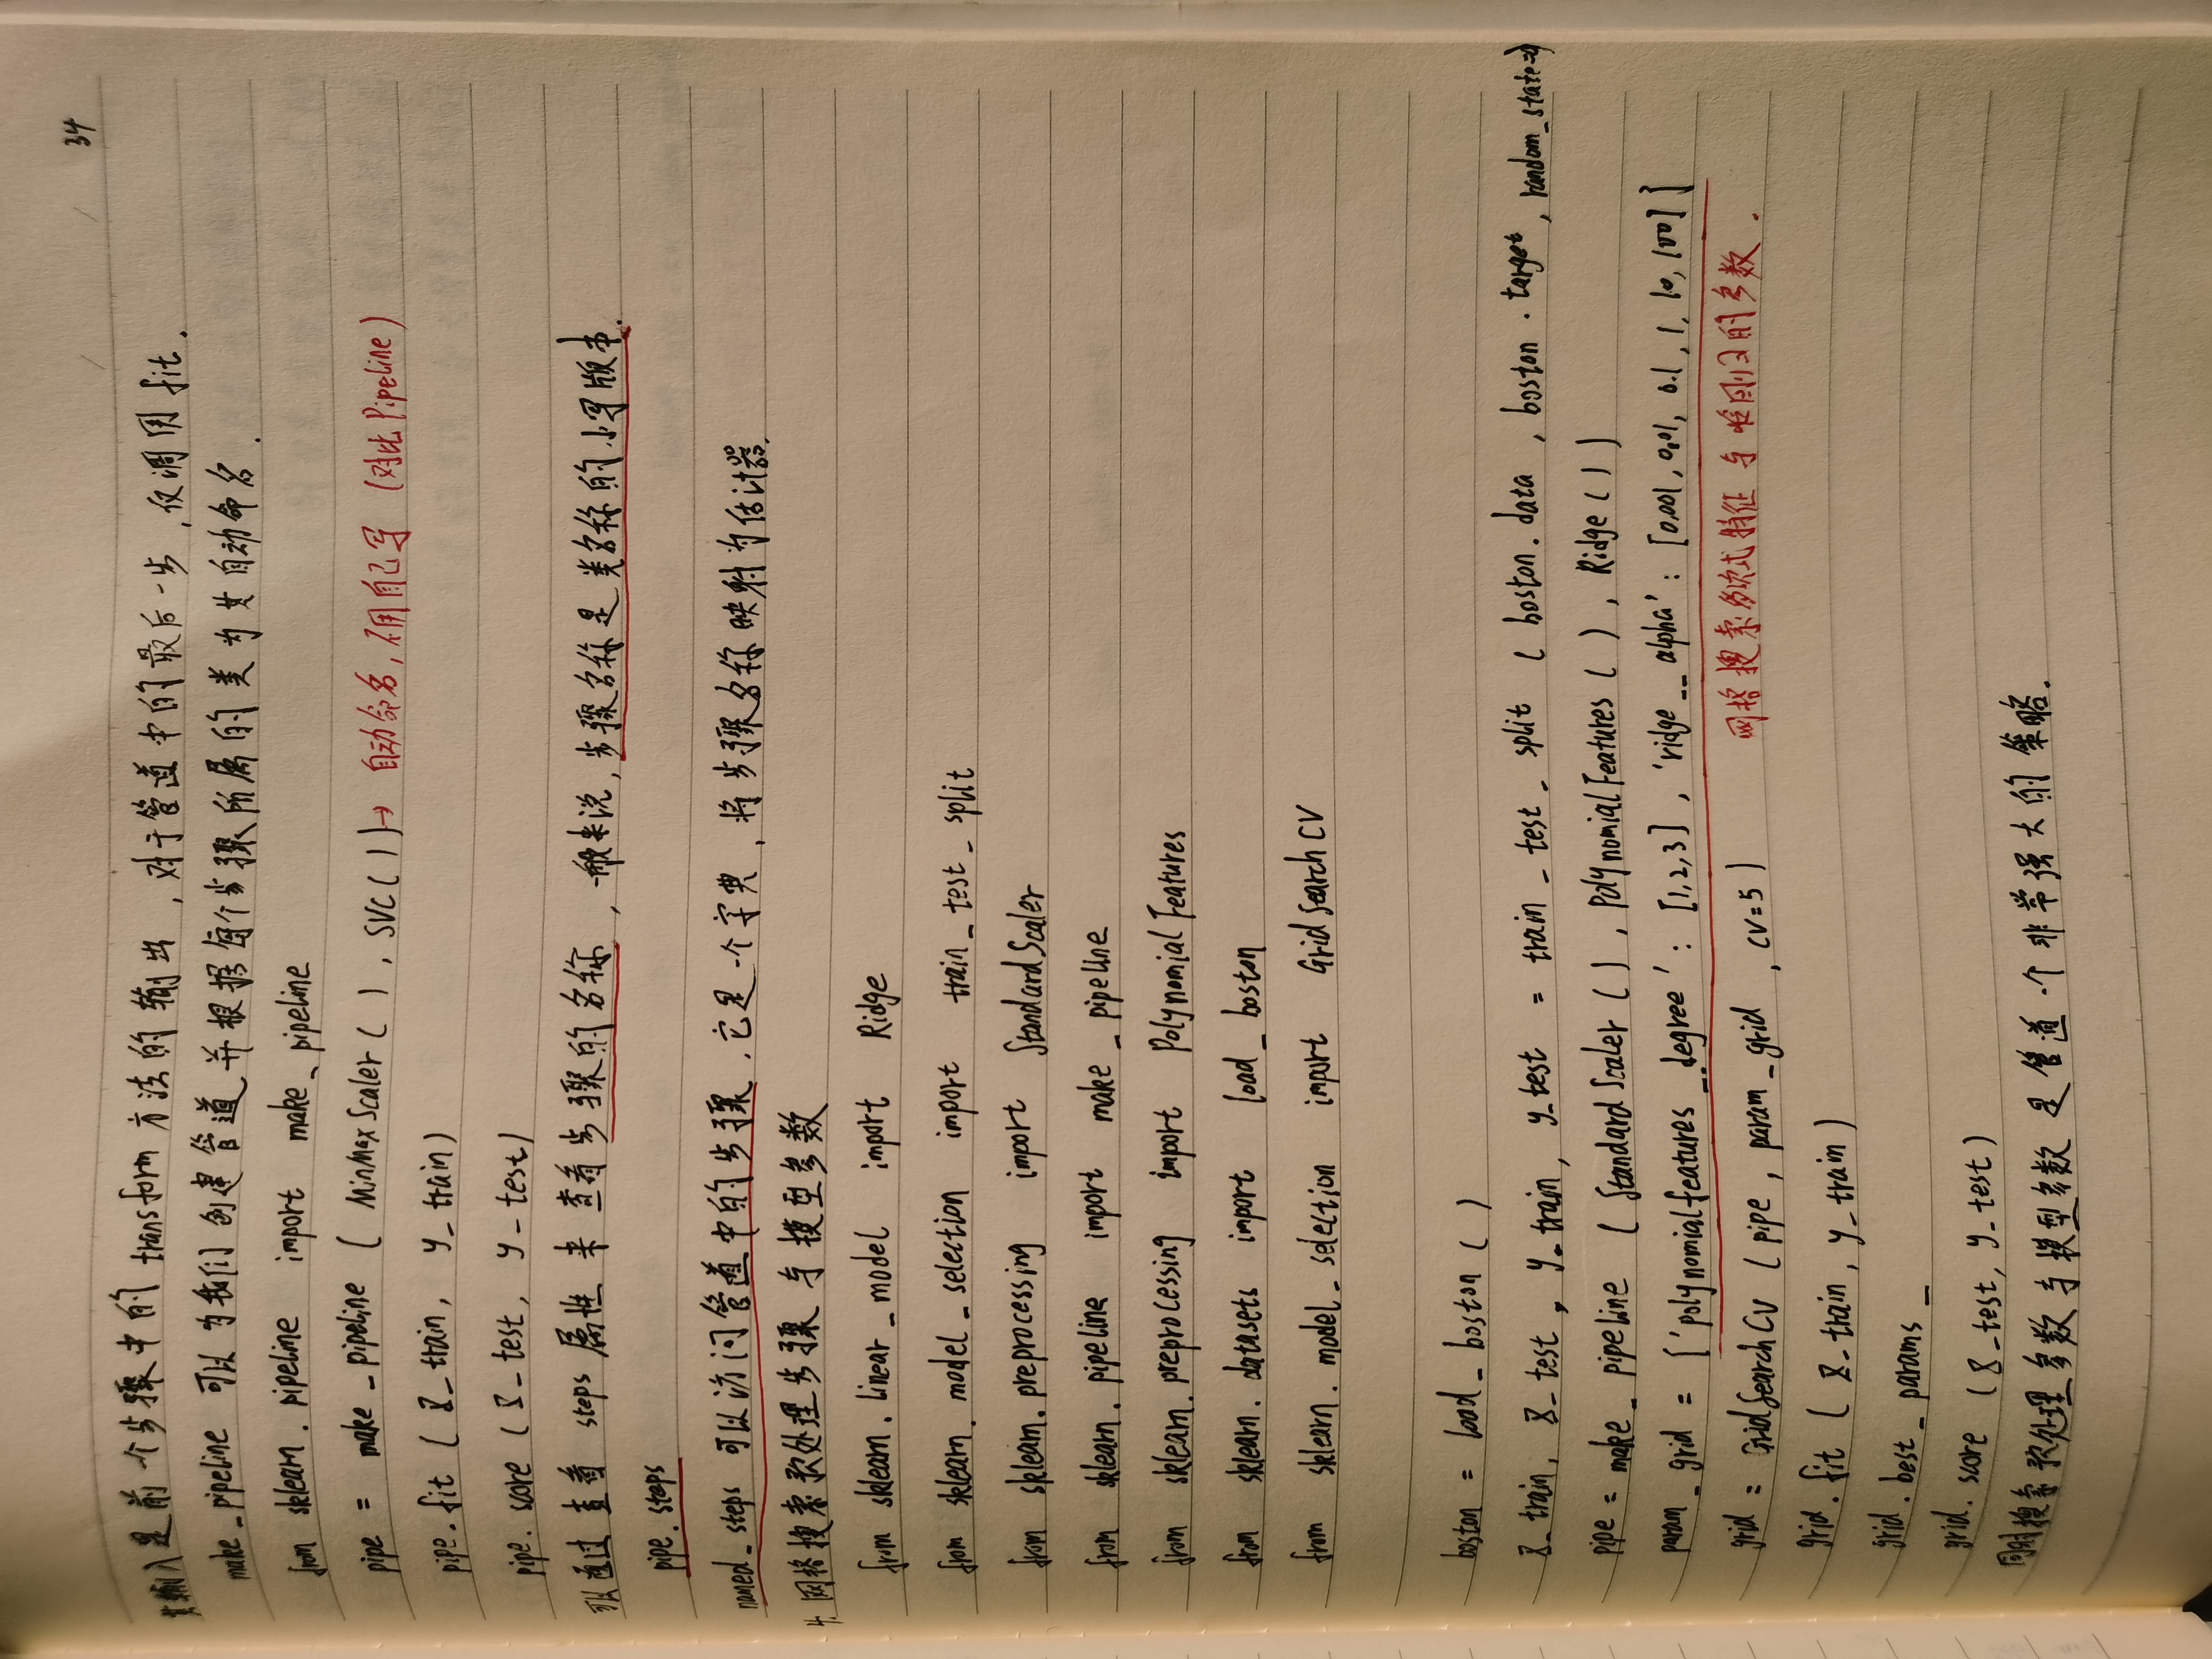 34
其输入是前一个步骤中的 transform 方法的输出，对于管道中的最后一步，仅调用 fit.
make_pipeline 可以为我们创建管道并根据每个步骤所属的类为其自动命名.
from sklearn.pipeline import make_pipeline
pipe = make_pipeline ( MinMaxScaler ( ) , SVC ( ) ) → 自动命名，不用自己写 (对比Pipeline)
pipe.fit ( X_train, y_train)
pipe.score ( X_test, y_test)
可以通过查看 steps 属性来查看步骤的名称，一般来说，步骤名称是类名称的小写版本.
pipe.steps
named_steps 可以访问管道中的步骤，它是一个字典，将步骤名称映射为估计器.
4. 网格搜索预处理步骤与模型参数
from sklearn.linear_model import Ridge
from sklearn.model_selection import train_test_split
from sklearn.preprocessing import StandardScaler
from sklearn.pipeline import make_pipeline
from sklearn.preprocessing import PolynomialFeatures
from sklearn.datasets import load_boston
from sklearn.model_selection import GridSearchCV
boston = load_boston ( )
X_train, X_test, y_train, y_test = train_test_split ( boston.data, boston.target, random_state=0)
pipe = make_pipeline ( StandardScaler ( ) , PolynomialFeatures ( ) , Ridge ( ) )
param_grid = {'polynomialfeatures__degree' : [1,2,3] , 'ridge__alpha' : [0.001, 0.01, 0.1, 1, 10, 100] }
grid = GridSearchCV ( pipe, param_grid , cv=5 ) 网格搜索多项式特征与岭回归的参数.
grid.fit ( X_train, y_train )
grid.best_params_
grid.score ( X_test, y_test)
同时搜索预处理参数与模型参数是管道一个非常强大的策略.